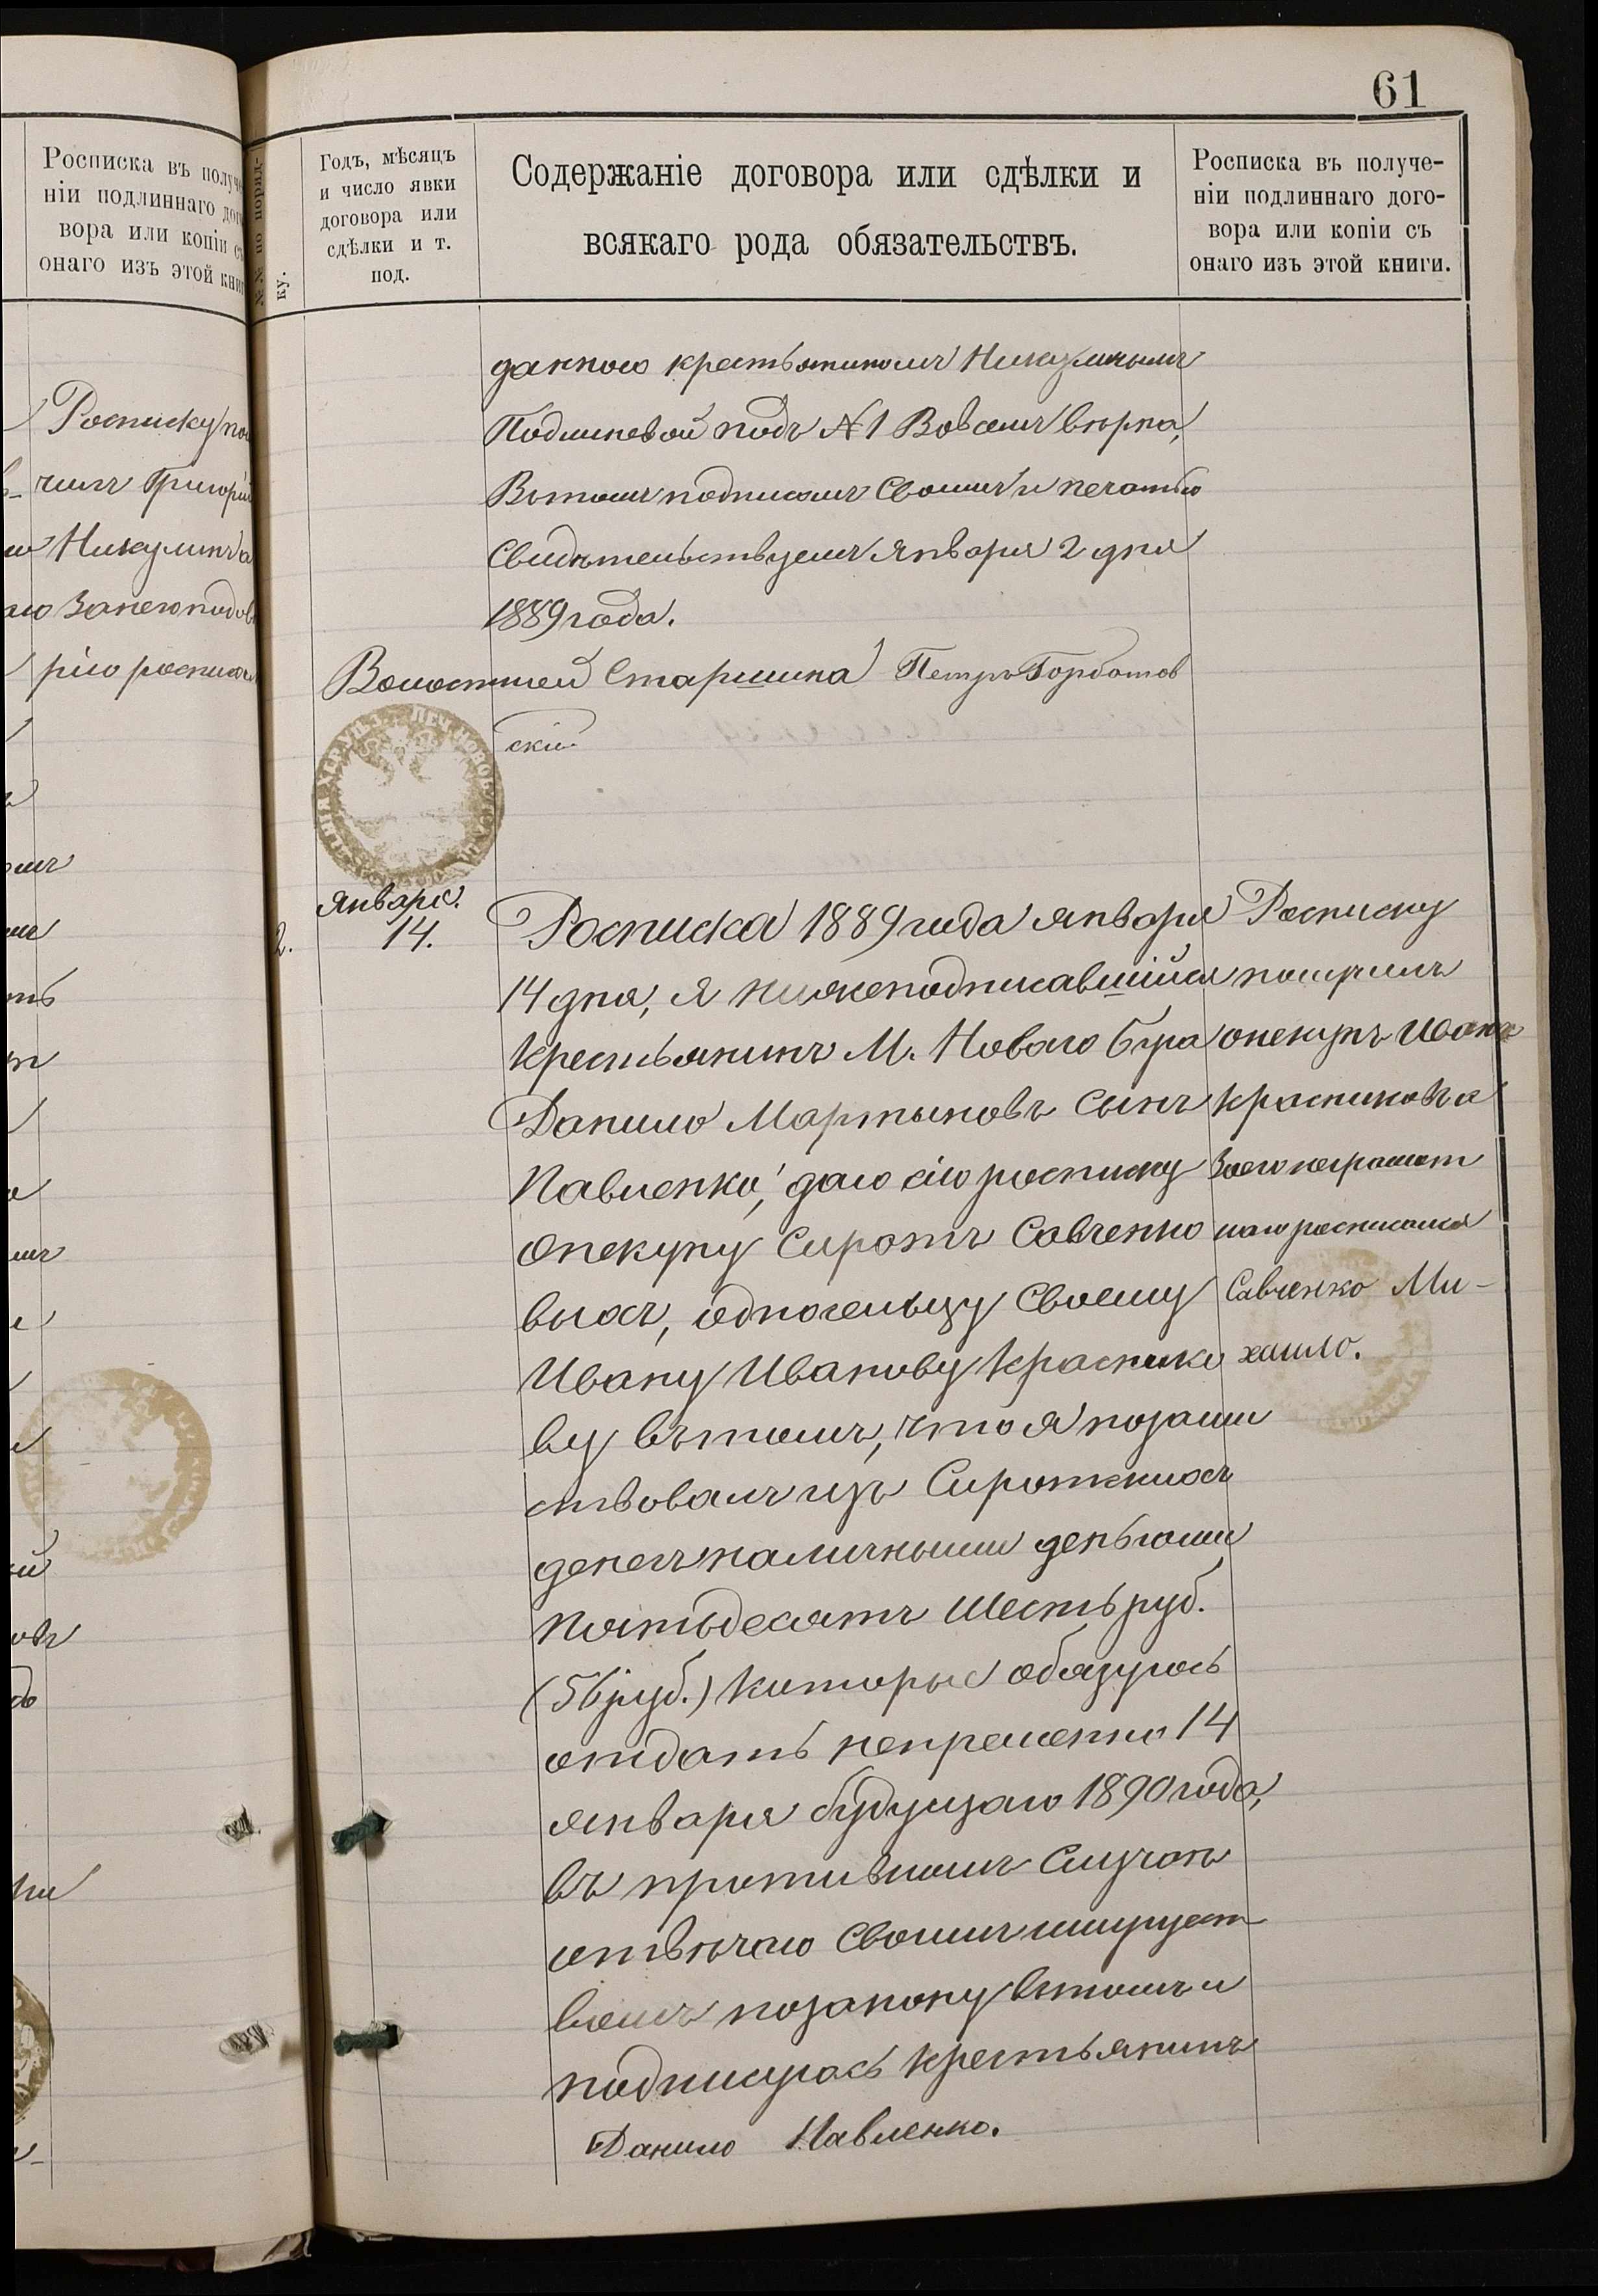 61
Росписка въ получе-
ніи подлиннаго дого-
вора или копіи съ
онаго изъ этой книги
Росписку по
чилъ Григорій
Никулинъ а
Занего подов
рію росписал
№№ по поряд-
ку.
Годъ, мѣсяцъ
и число явки
договора или
сдѣлки и т.
под.
Содержаніе договора или сдѣлки и
всякаго рода обязательствъ.
Росписка въ получе-
ніи подлиннаго дого-
вора или копіи съ
онаго изъ этой книги.
данною крестьяниномъ Никулинымъ
Подлиневой подъ №1 Вовсемъ вѣрна,
Вътомъ подписомъ Своимъ и печатью
Свидѣтельствуемъ Января 2 дня
1889 года.
Волостней Старшина Петръ Горбатов
скій
Января.
2.
14.
Росписка 1889 года января
14 дня, я нижеподписавшійся
крестьянинъ М. Новаго Буга
Данило Мартыновъ Сынъ
Павленко, даю сію росписку
Опекуну Сиротъ Савченко
выхъ, односельцу Своему
Ивану Иванову Краснико
ву вътомъ, что я позаим
ствовалъ изъ Сиротскихъ
денегъ наличными деньгами
пятьдесятъ Шесть руб.
(56 руб.) которые обязуюсь
отдать непременно 14
января будущаго 1890 года,
въ противномъ Случаѣ
отвѣчаю Своимъ имущест
вомъ позакону вътомъ и
подписуюсь крестьянинъ
Данило Павленко.
Росписку
получилъ
опекунъ Иванъ
Красниковъ а
Заего неграмот
наго росписался
Савченко Ми-
хайло.